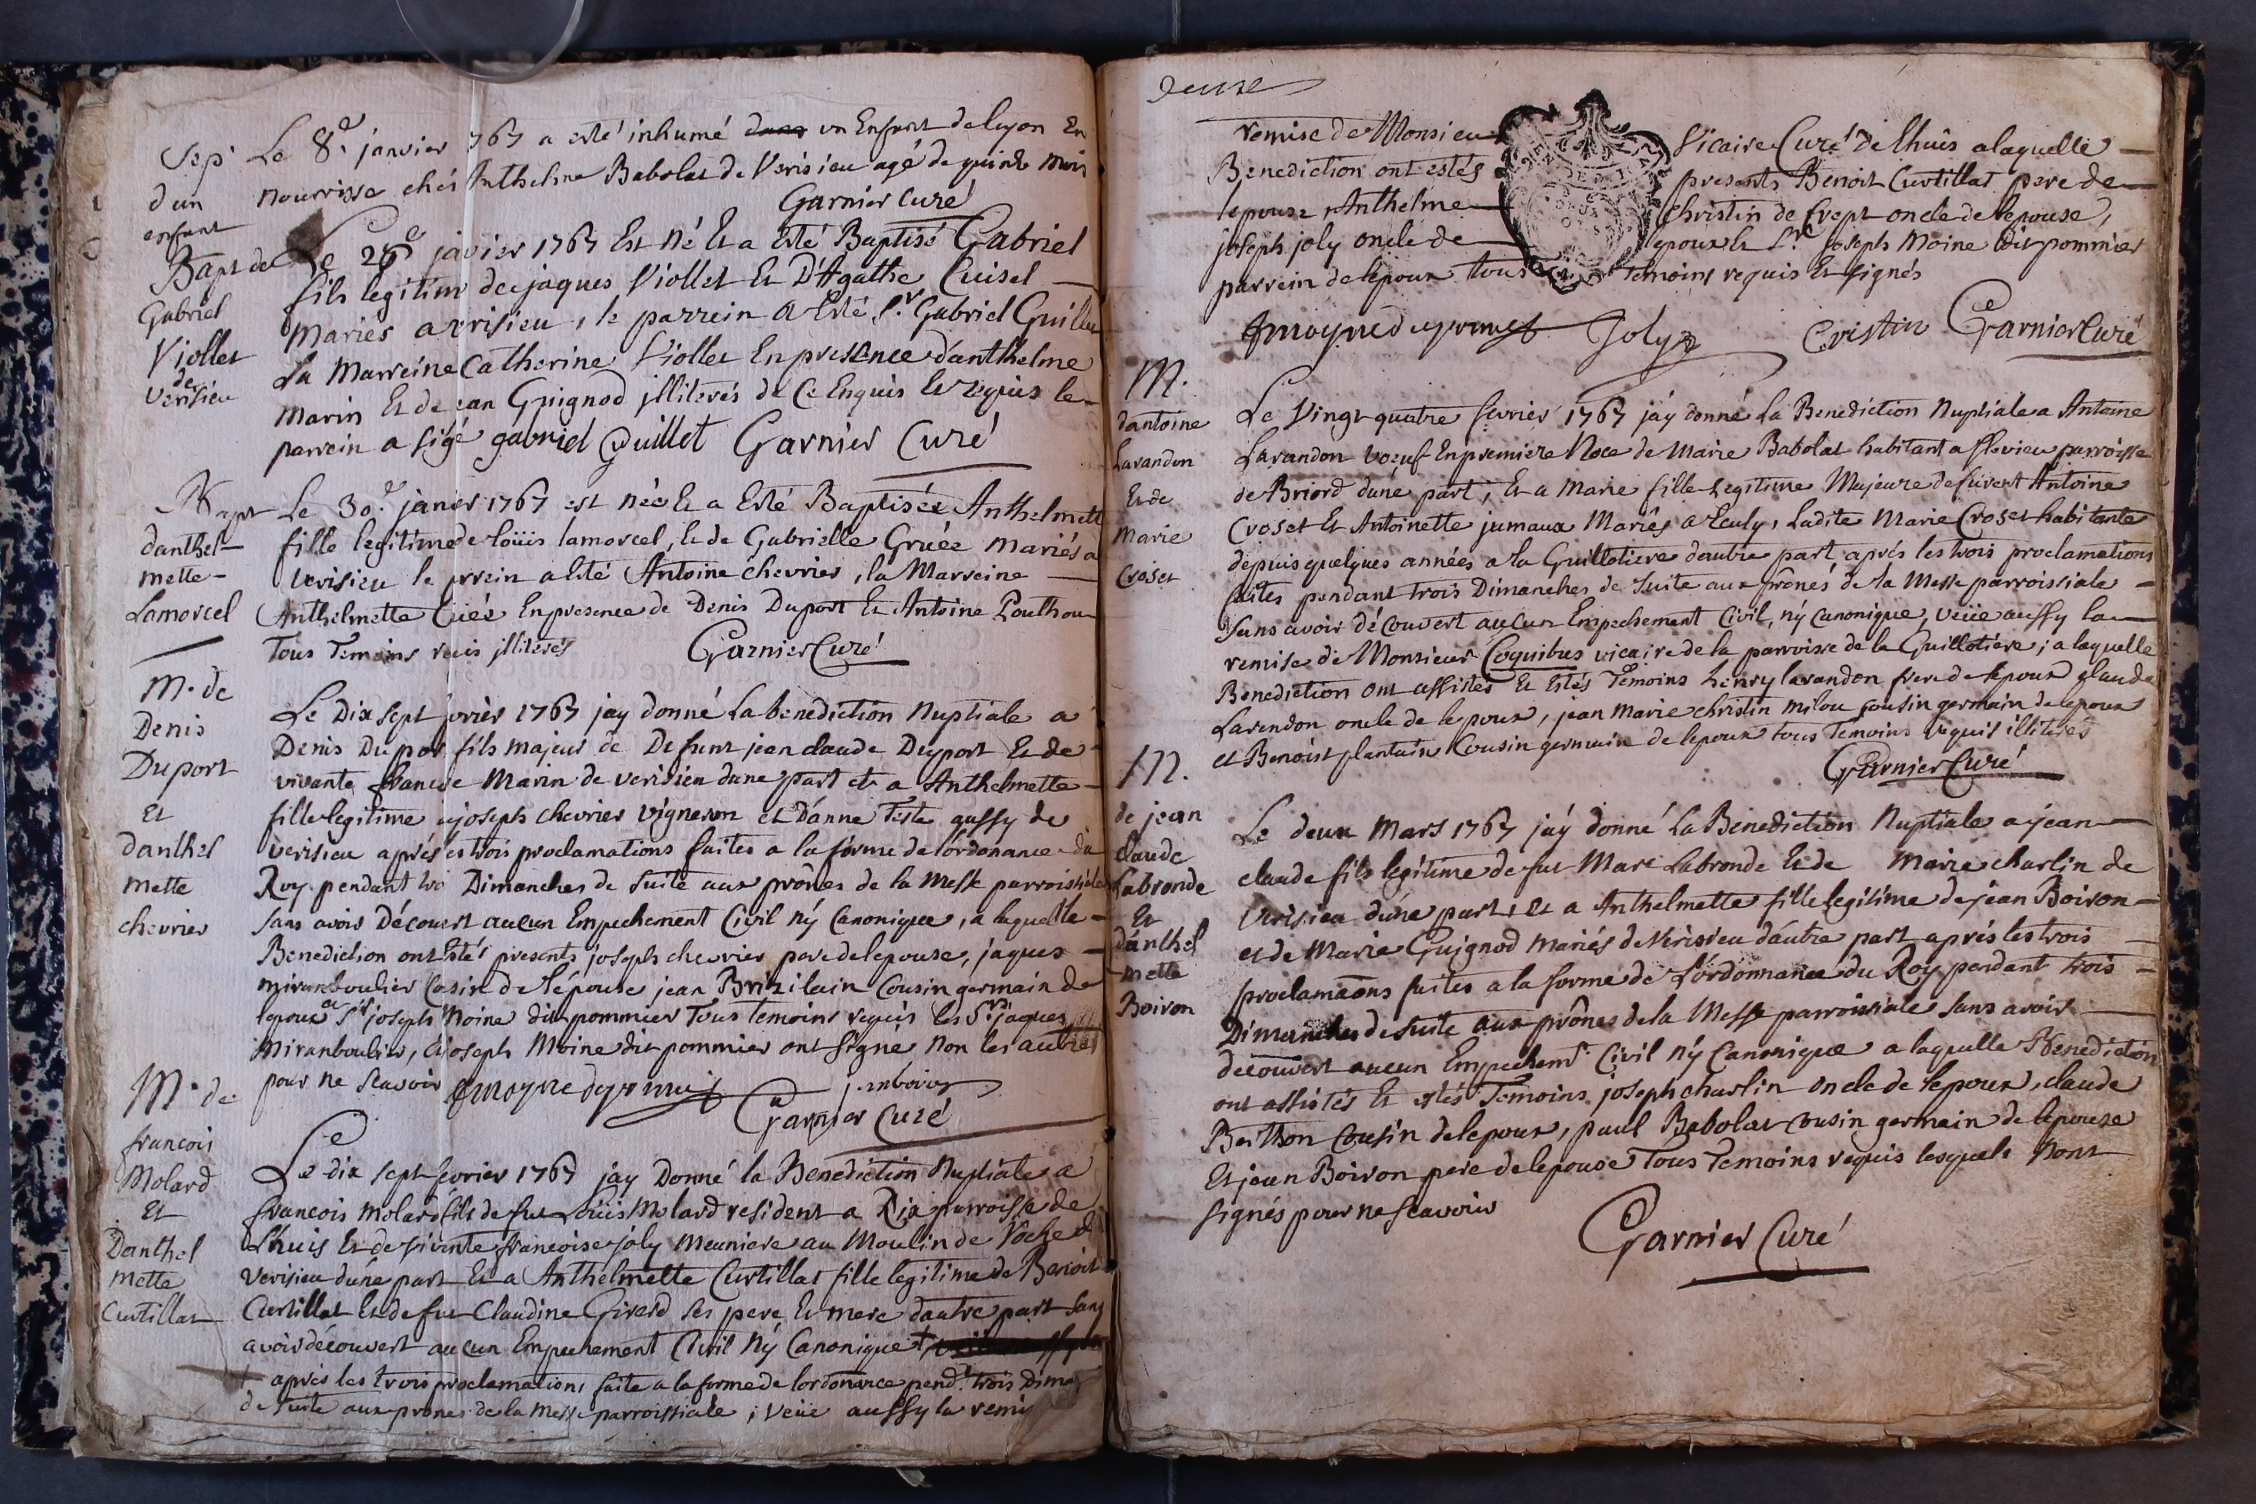 Sep.
d'un
enfant
Le 8.e janvier 1767 a esté inhumé dans un Enfant de lyon En
nourrisse chés Anthelme Babolat de Verisieu agé de quinze mois
Garnier Curé
Bapt de
Gabriel
Viollet
de
Verisieu
Le 26e javier 1767 Est Né Et a Esté Baptisé Gabriel
fils legitim de jaques Viollet Et D'Agathe Cuisel
Mariés a vrisieu, le parrein a Esté Sr. Gabriel Guillet
La Marreine Catherine Viollet En presence d'anthelme
Marin Et de jean Guignod jlliterés de Ce Enquis Et requis le
parrein a sigé gabriel Guillet Garnier Curé
Bapt
danthel-
mette-
Lamorcel
Le 30.e janvier 1767 est née Et a Esté Baptisée Anthelmett
fille legitime de loüis lamorcel, Et de Gabrielle Gruée mariés a
Verisieu le prrein a Esté Antoine chevrier, la Marreine
Anthelmette Cuée En presence de Denis Duport Et Antoine Pouthou
Tous Temoins jlliterés
Garnier Curé
M. de
Denis
Duport
Et
danthel
mette
chevrier
Le Dix sept fevrier 1767 jay donné La benediction Nuptiale a
Denis Duport fils majeur de Defunt jean claude Duport Et de
vivante francoise Marin de verisieu dune part et a Anthelmette
fille legitime de joseph chevrier vigneron et D'anne Teste aussy de
verisieu aprés les trois proclamations faites a la forme de lordonance du
Roy pendant troi Dimanches de suite aux prônes de la Messe parroissiale
sans avoir Découert aucun Empechement Civil ny Canonique, a laquelle
Benediction ont Estés presents joseph chevrier pere de lepouse, jaques
miranboulier Casin de lepouse jean Brizilain Cousin germain de
lepoux et Sr. joseph Moine dit pommier Tous temoins requis les Srs jaques
Miranboulier, et joseph Moine dit pommier ont signé non les autres
pour ne scavoir
Garnier Curé
M. de
francois
Molard
Et
Danthel
mette
Curtillat
Le dix sept fevrier 1767 jay Donné la Benediction Nuptiale a
francois Molard fils de fut Loüis Molard resident a Rix parroisse de
Lhuis Et de vivante francoise joly Meuniere au Moulin de
Verisieu dune part Et a Anthelmette Curtillat fille legitime de Benoit
Curtillat Et de fut Claudine Girard ses pere Et mere dautre part sans
avoir découvert aucun Empechement Civil Ny Canonique +
+ aprés les trois proclamations faite a la forme de lordonance pend.t trois Dima
de suite aux prones de la Messe parroissiale; Veüe aussy la remi
deuxe
remise de Monsieu Vicaire Curé de lhuis a laquelle
Benediction ont estés presents Benoit Curtillat pere de
lepouse, Anthelme Christin de Crept oncle de lepouse,
joseph joly oncle de epoux Et Sr. joseph Moine dit pommier
parrein de lepoux tous Temoins requis Et signés
Joly Cristin Garnier Curé
M.
dantoine
Lavandon
Et de
Marie
Croset
Le Vingt quatre fevrier 1767 jáy donné La Benediction Nuptiale a Antoine
Lavandon voeuf En premiere Noce de Marie Babolat habitant a flevieu parroisse
de Briord dune part, Et a Marie fille Legitime Majeure de fuvent Antoine
Croset Et Antoinette jumaux Mariés a Eculy, Ladite Marie Croset habitante
depuis quelques années a la Guillotiere dautre part, aprés les trois proclamations
faites pendant trois Dimanches de suite aux prônes de la Messe parroissiale
sans avoir décovert aucun Empechement Civil, ny Canonique, veüe aussy la
remise de Monsieur Coquibus vicaire de la parroisse de la Guillotiere; a laquelle
Benediction ont assistés Et Estés Temoins henry lavandon frere de lepoux glaude
Lavendon oncle de lepoux, jean Marie christin milou cousin germain de lepoux
et Benoist plantain Cousin germain de lepoux tous Temoins requis illiterés
Garnier Curé
M.
de jean
claude
Labronde
Et
danthel
mette
Boiron
Le deux Mars 1767 jáy donné La Benediction Nuptiale a jean
claude fils legitime de fut Marc Labronde Et de Marie charlin de
Verisieu dune part, et a Anthelmette fille legitime de jean Boiron
et de Marie Guignod mariés de Verisieu dautre part aprés les trois
proclamaons faites a la forme de Lordonnance du Roy pendant trois
Dimanches de suite aux prônes de la Messe parroissiale sans avoir
découvert aucun Empechemt. Civil ny Canonique a laquelle Benediction
ont assistés Et estés Temoins joseph charlin oncle de lepoux, claude
Berthon Cousin de lepoux, paul Babolat cousin germain de lepouse
Et jean Boiron pere de lepouse Tous Temoins requis lesquels Nont
signés pour ne scavoir
Garnier Curé